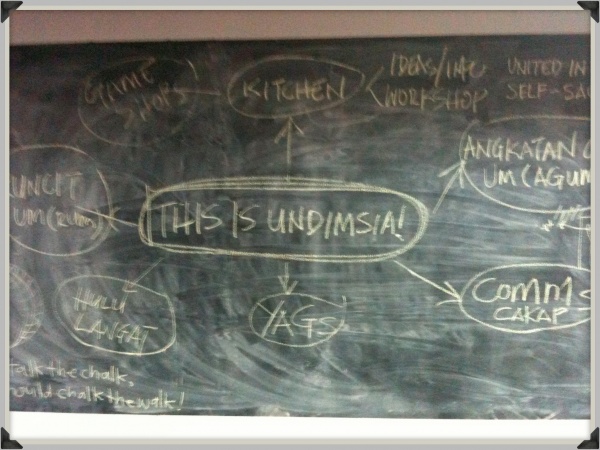 GAME
SHOPS
KITCHEN
IDEAS/
WORKSHOP
UNITED IN
SELF-SAC
ANGKATAN
UM (AGUM
UNCIT
UM
THIS IS UNDIMSIA!
HULU
LANGAT
YAGS
COMM
CAKAP
Talk the chalk,
ould chalk the walk!